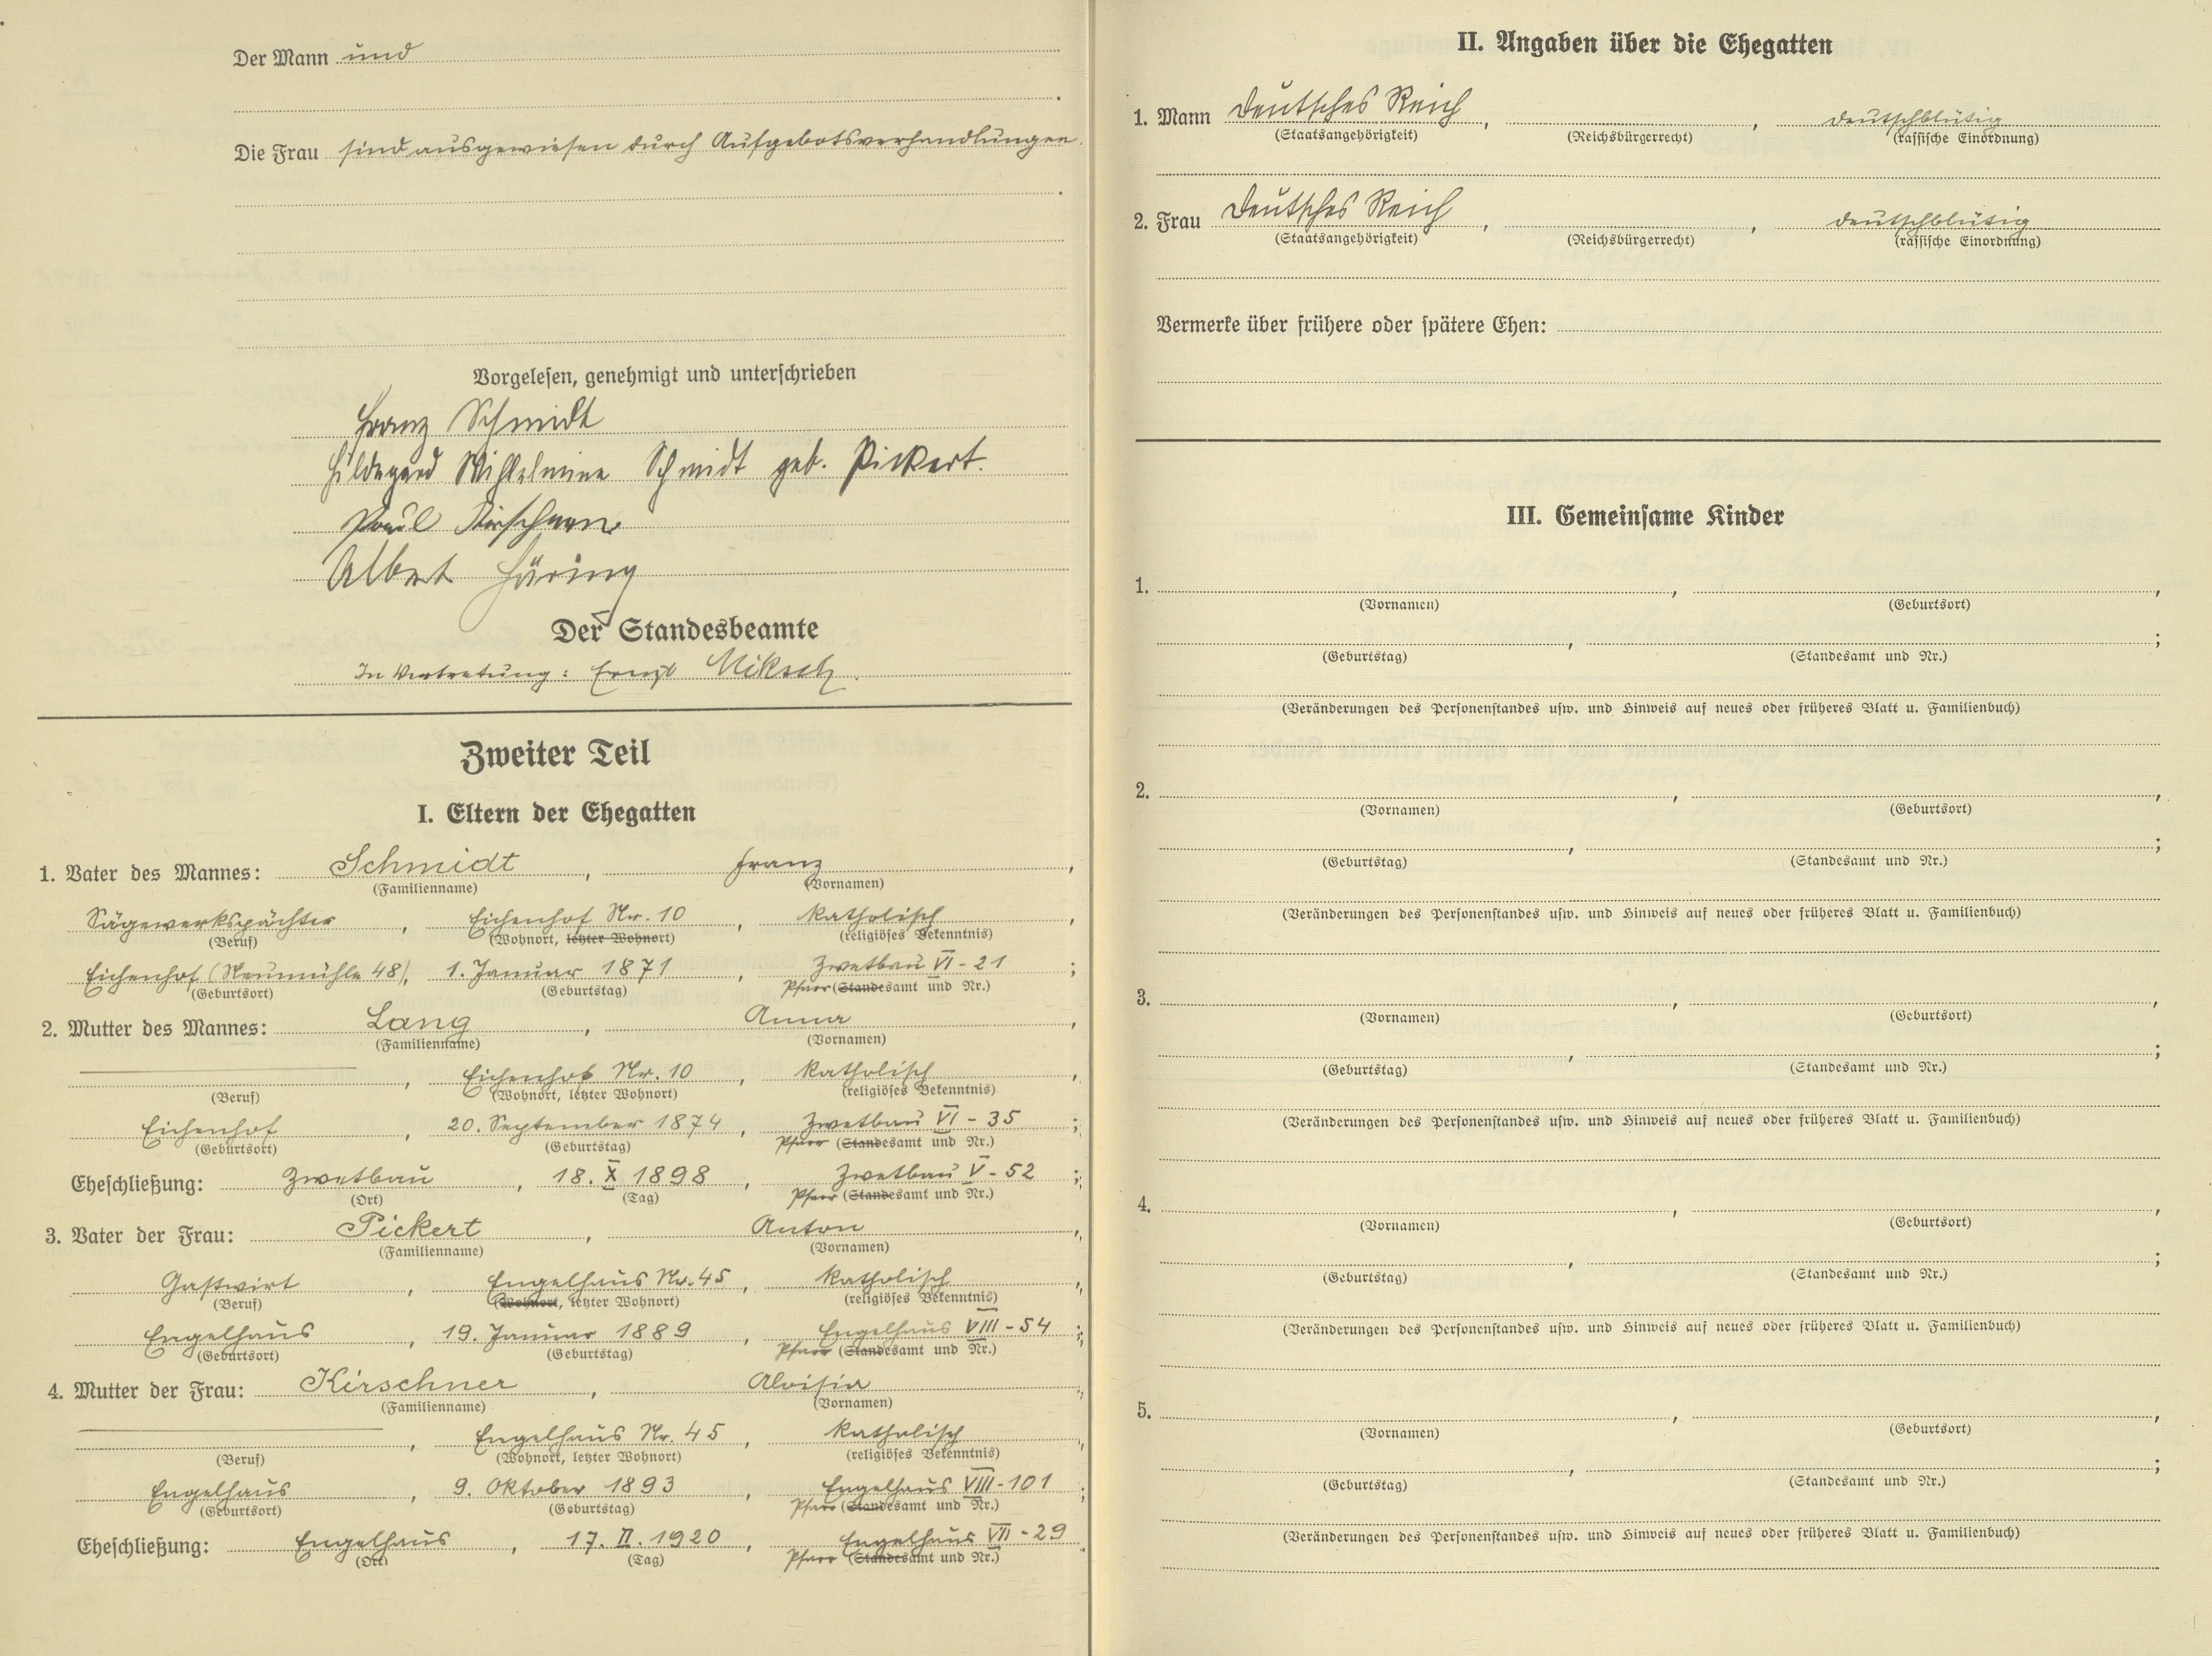 Der Mann und
Die Frau sind ausgewiesen durch Aufgebotsverhandlungen.
Vorgelesen, genehmigt und unterschrieben
Franz Schmidt
Hildegard Wilhelmine Schmidt geb. Pickert.
Paul
Albert Häring
Der Standesbeamte
In Vertretung: Ernst Miksch
Zweiter Teil
I. Eltern der Ehegatten
1. Vater des Mannes: Schmidt, Franz,
(Familienname) (Vornamen)
Sägewerkspächter, Eichenhof Nr. 10, katholisch,
(Beruf) (Wohnort, letzter Wohnort) (religiöses Bekenntnis)
Eichenhof (Neumühle 48), 1. Januar 1871, Zwetbau VI - 21;
(Geburtsort) (Geburtstag) Pfarr (Standesamt und Nr.)
2. Mutter des Mannes: Lang, Anna,
(Familienname) (Vornamen)
, Eichenhof Nr. 10, katholisch,
(Beruf) (Wohnort, letzter Wohnort) (religiöses Bekenntnis)
Eichenhof, 20. September 1874, Zwetbau VI - 35;
(Geburtsort) (Geburtstag) Pfarr (Standesamt und Nr.)
Eheschließung: Zwetbau, 18. X 1898, Zwetbau V - 52;
(Ort) (Tag) Pfarr (Standesamt und Nr.)
3. Vater der Frau: Pickert, Anton,
(Familienname) (Vornamen)
Gastwirt, Engelhaus Nr. 45, katholisch,
(Beruf) (Wohnort, letzter Wohnort) (religiöses Bekenntnis)
Engelhaus, 19. Januar 1889, Engelhaus VIII - 54;
(Geburtsort) (Geburtstag) Pfarr (Standesamt und Nr.)
4. Mutter der Frau: Kirschner, Aloisia,
(Familienname) (Vornamen)
, Engelhaus Nr. 45, katholisch,
(Beruf) (Wohnort, letzter Wohnort) (religiöses Bekenntnis)
Engelhaus, 9. Oktober 1893, Engelhaus VIII - 101;
(Geburtsort) (Geburtstag) Pfarr (Standesamt und Nr.)
Eheschließung: Engelhaus, 17. II. 1920, Engelhaus VII - 29
(Ort) (Tag) Pfarr (Standesamt und Nr.)
II. Angaben über die Ehegatten
1. Mann Deutsches Reich, , deutschblütig
(Staatsangehörigkeit) (Reichsbürgerrecht) (rassische Einordnung)
2. Frau Deutsches Reich, , deutschblütig
(Staatsangehörigkeit) (Reichsbürgerrecht) (rassische Einordnung)
Vermerke über frühere oder spätere Ehen:
III. Gemeinsame Kinder
1. , ,
(Vornamen) (Geburtsort)
, ;
(Geburtstag) (Standesamt und Nr.)
(Veränderungen des Personenstandes usw. und Hinweis auf neues oder früheres Blatt u. Familienbuch)
2. , ,
(Vornamen) (Geburtsort)
, ;
(Geburtstag) (Standesamt und Nr.)
(Veränderungen des Personenstandes usw. und Hinweis auf neues oder früheres Blatt u. Familienbuch)
3. , ,
(Vornamen) (Geburtsort)
, ;
(Geburtstag) (Standesamt und Nr.)
(Veränderungen des Personenstandes usw. und Hinweis auf neues oder früheres Blatt u. Familienbuch)
4. , ,
(Vornamen) (Geburtsort)
, ;
(Geburtstag) (Standesamt und Nr.)
(Veränderungen des Personenstandes usw. und Hinweis auf neues oder früheres Blatt u. Familienbuch)
5. , ,
(Vornamen) (Geburtsort)
, ;
(Geburtstag) (Standesamt und Nr.)
(Veränderungen des Personenstandes usw. und Hinweis auf neues oder früheres Blatt u. Familienbuch)